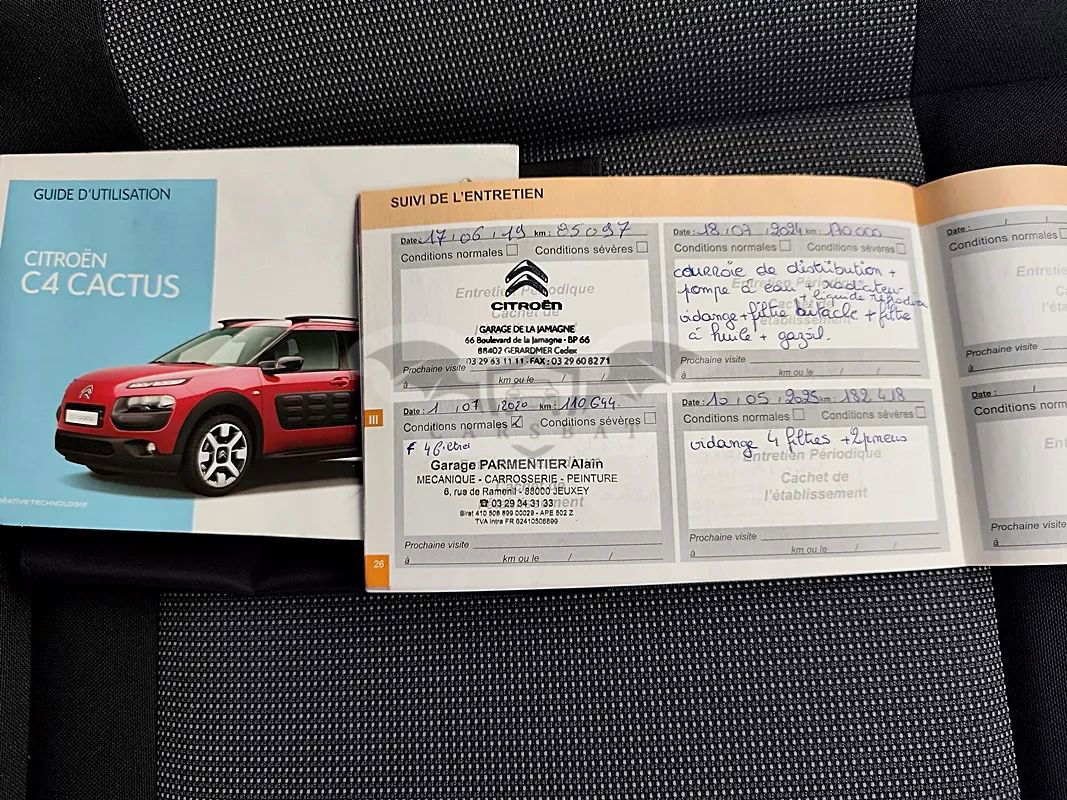 GUIDE D'UTILISATION
CITROËN
C4 CACTUS
CRÉATIVE TECHNOLOGIE
SUIVI DE L'ENTRETIEN
Date : 17 / 06 / 19 km : 85097
Conditions normales Conditions sévères
Entretien Périodique
Cachet de
CITROËN
GARAGE DE LA JAMAGNE
66 Boulevard de la Jamagne - BP 66
88402 GERARDMER Cedex
03 29 63 11 11 - FAX : 03 29 60 82 71
Prochaine visite
à km ou le / /
Date : 1 / 07 / 2020 km : 110644
Conditions normales Conditions sévères
4 filtres
Garage PARMENTIER Alain
MECANIQUE - CARROSSERIE - PEINTURE
6, rue de Ramenil - 88000 JEUXEY
☎ 03 29 34 31 33
Siret 410 508 899 00029 - APE 502 Z
TVA intra FR 62410508899
Prochaine visite
à km ou le / /
26
III
Date : 18 / 07 / 2024 km : 170000
Conditions normales Conditions sévères
courroie de distribution +
pompe à eau + radiateur
+ liquide
vidange + filtre + filtre
à huile + gazoil.
Entretien Périodique
Cachet de
l'établissement
Prochaine visite
à km ou le / /
Date : 10 / 05 / 2025 km : 182 418
Conditions normales Conditions sévères
vidange 4 filtres + 2 pneus
Entretien Périodique
Cachet de
l'établissement
Prochaine visite
à km ou le / /
Date : / /
Conditions norm
Entre
Ca
l'éta
Prochaine visite
à
Date : / /
Conditions norm
Ent
l'é
Prochaine visite
à
CARSBAT